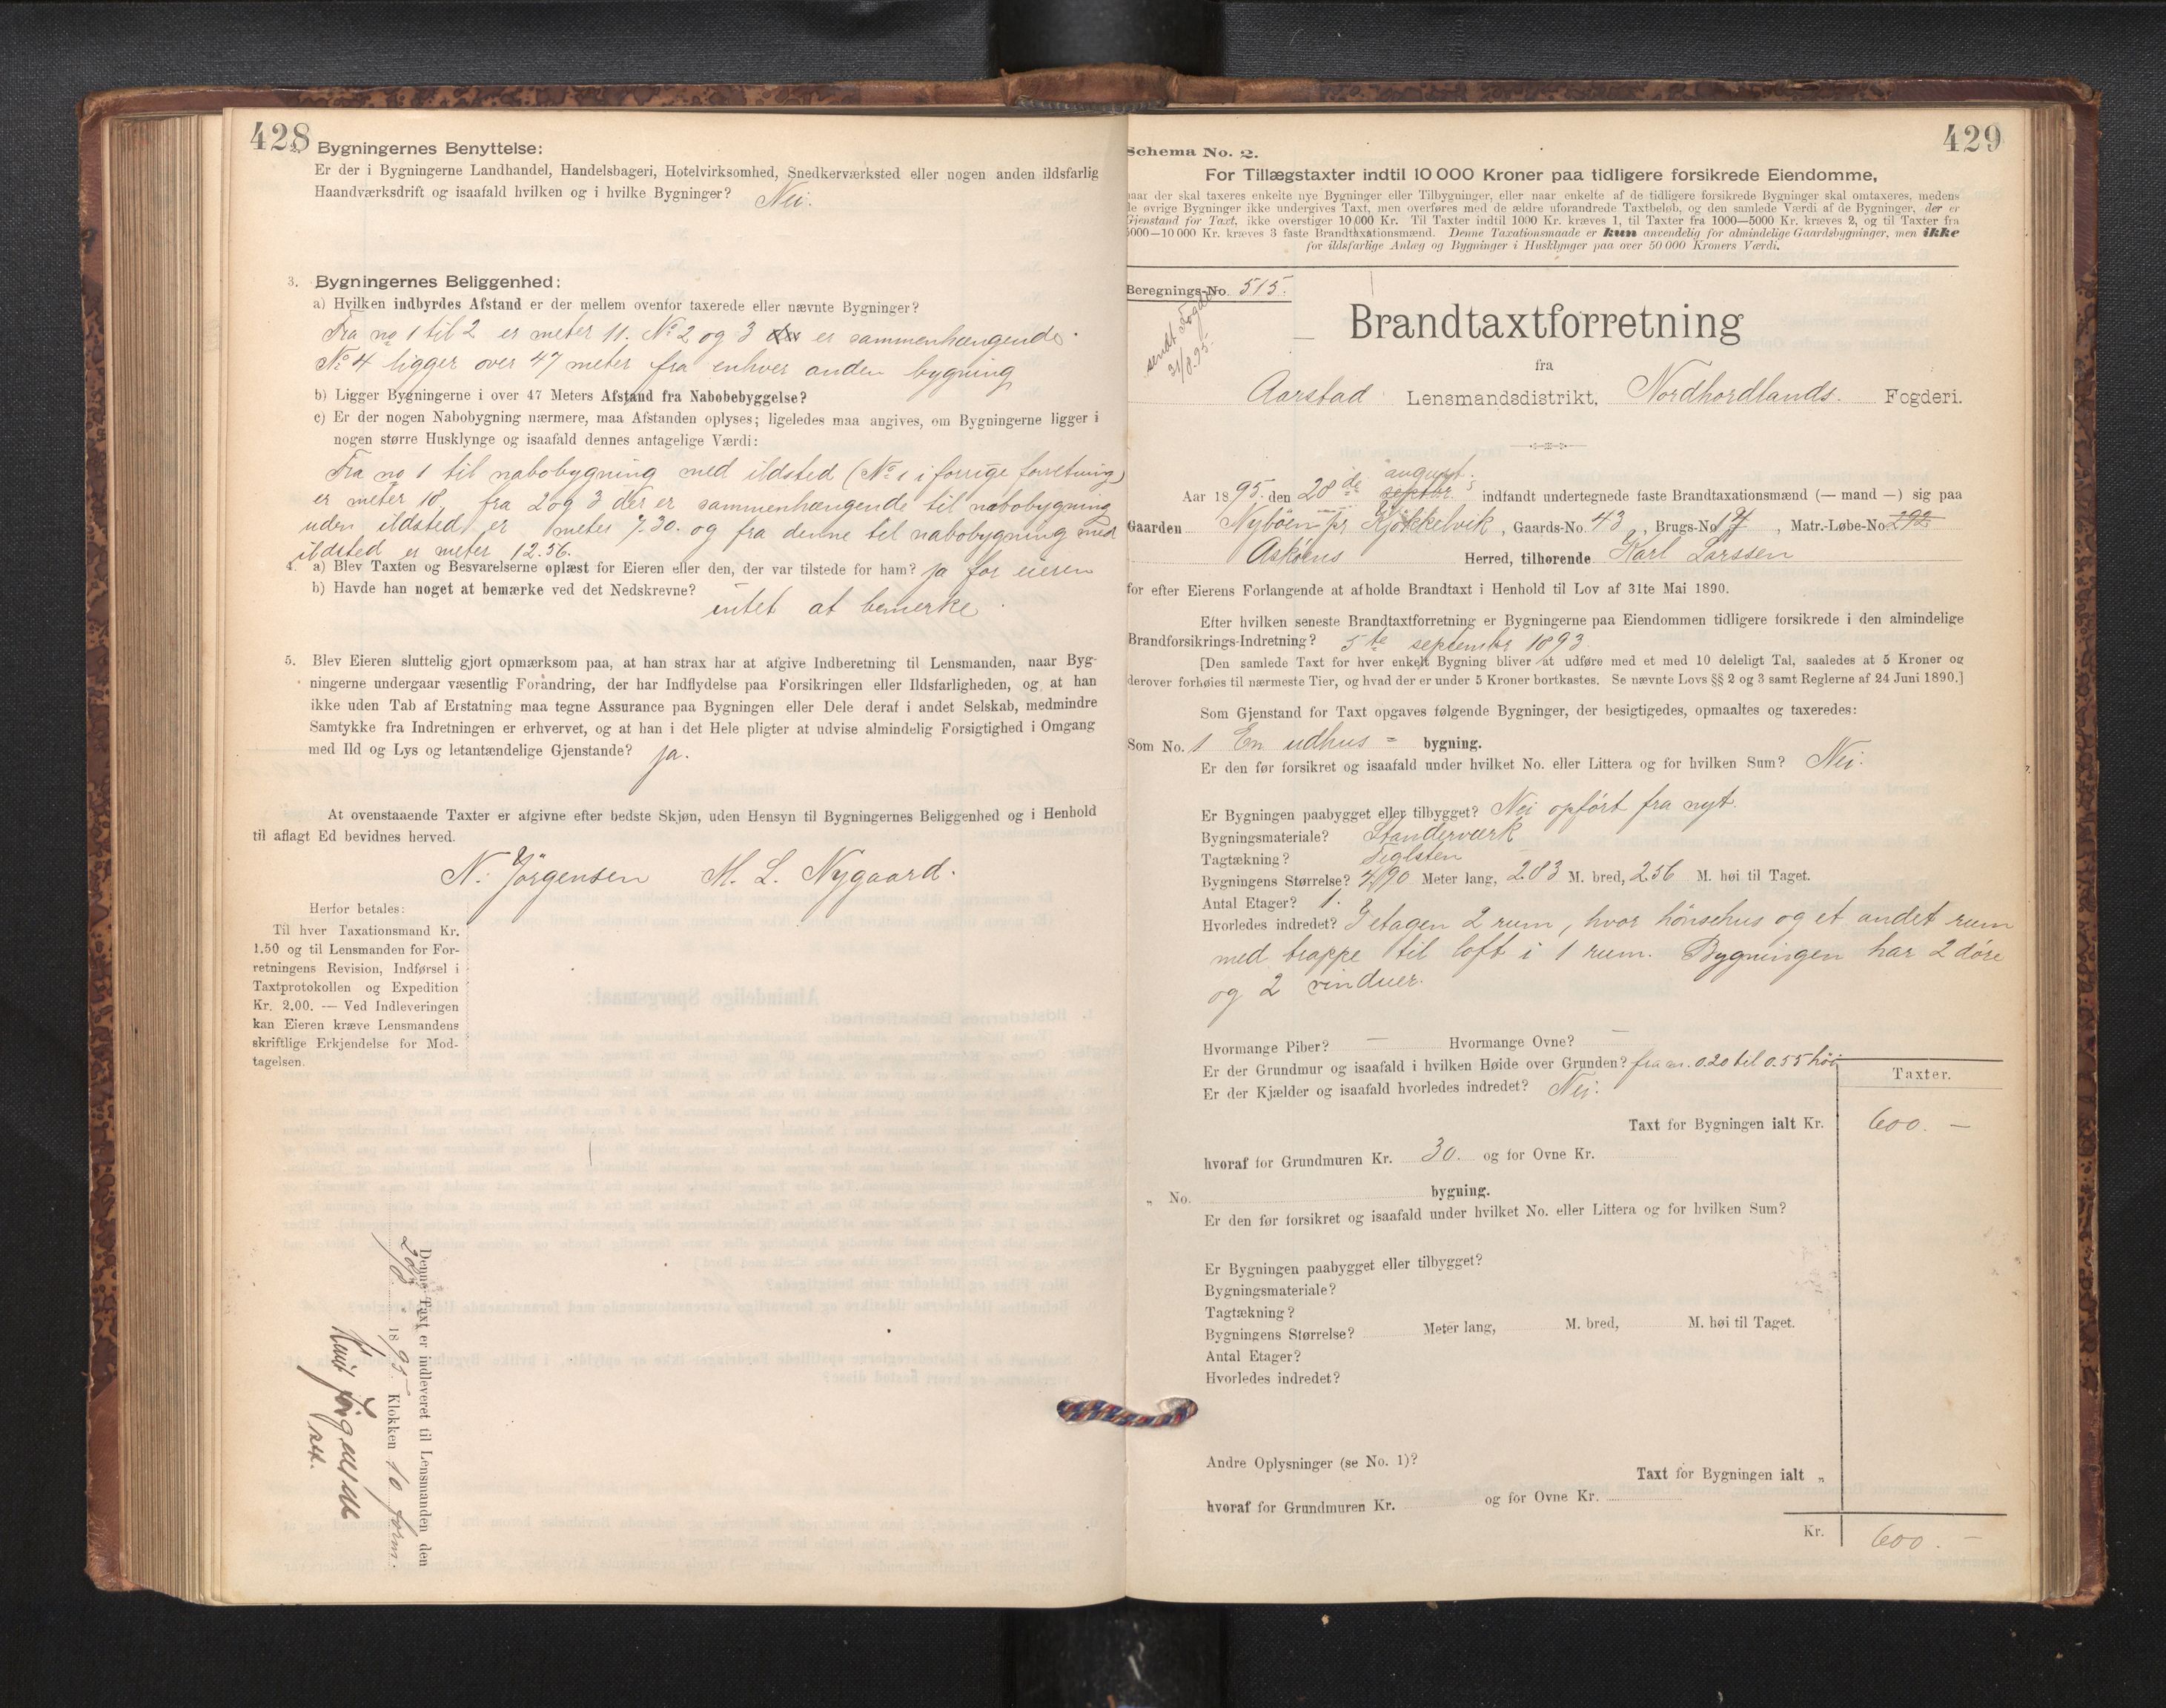 428
2. Bygningernes Benyttelse:
Er der i Bygningerne Landhandel, Handelsbageri, Hotelvirksomhed, Snedkerværksted eller nogen anden ildsfarlig
Haandværksdrift og isaafald hvilken og i hvilke Bygninger? Nei.
3. Bygningernes Beliggenhed:
a) Hvilken indbyrdes Afstand er der mellem ovenfor taxerede eller nævnte Bygninger?
Fra no 1 til 2 er meter 11. No 2 og 3 er sammenhængende.
No 4 ligger over 47 meter fra enhver anden bygning
b) Ligger Bygningerne i over 47 Meters Afstand fra Nabobebyggelse?
c) Er der nogen Nabobygning nærmere, maa Afstanden oplyses; ligeledes maa angives, om Bygningerne ligger i
nogen større Husklynge og isaafald dennes antagelige Værdi:
Fra no 1 til nabobygning med ildsted (No 1 i forrige forretning)
er meter 18, fra 2 og 3 der er sammenhængende til nabobygning
uden ildsted er meter 7.30. og fra denne til nabobygning med
ildsted er meter 12.56.
4. a) Blev Taxten og Besvarelserne oplæst for Eieren eller den, der var tilstede for ham? ja for eieren
b) Havde han noget at bemærke ved det Nedskrevne?
intet at bemerke.
5. Blev Eieren sluttelig gjort opmærksom paa, at han strax har at afgive Indberetning til Lensmanden, naar Byg-
ningerne undergaar væsentlig Forandring, der har Indflydelse paa Forsikringen eller Ildsfarligheden, og at han
ikke uden Tab af Erstatning maa tegne Assurance paa Bygningen eller Dele deraf i andet Selskab, medmindre
Samtykke fra Indretningen er erhvervet, og at han i det Hele pligter at udvise almindelig Forsigtighed i Omgang
med Ild og Lys og letantændelige Gjenstande? ja.
At ovenstaaende Taxter er afgivne efter bedste Skjøn, uden Hensyn til Bygningernes Beliggenhed og i Henhold
til aflagt Ed bevidnes herved.
N. Jörgensen M. L. Nygaard.
Herfor betales:
Til hver Taxationsmand Kr.
1.50 og til Lensmanden for For-
retningens Revision, Indførsel i
Taxtprotokollen og Expedition
Kr. 2.00. — Ved Indleveringen
kan Eieren kræve Lensmandens
skriftlige Erkjendelse for Mod-
tagelsen.
Denne Taxt er indleveret til Lensmanden den
1895 Klokken 10 form.
429
Schema No. 2.
For Tillægstaxter indtil 10 000 Kroner paa tidligere forsikrede Eiendomme,
naar der skal taxeres enkelte nye Bygninger eller Tilbygninger, eller naar enkelte af de tidligere forsikrede Bygninger skal omtaxeres, medens
de øvrige Bygninger ikke undergives Taxt, men overføres med de ældre uforandrede Taxtbeløb, og den samlede Værdi af de Bygninger, der er
Gjenstand for Taxt, ikke overstiger 10.000 Kr. Til Taxter indtil 1000 Kr. kræves 1, til Taxter fra 1000—5000 Kr. kræves 2, og til Taxter fra
5000—10 000 Kr. kræves 3 faste Brandtaxationsmænd. Denne Taxationsmaade er kun anvendelig for almindelige Gaardsbygninger, men ikke
for ildsfarlige Anlæg og Bygninger i Husklynger paa over 50 000 Kroners Værdi.
Beregnings-No. 515.
sendt Fogden
31/8.95.
Brandtaxtforretning
fra
Aarstad Lensmandsdistrikt, Nordhordlands. Fogderi.
august.
Aar 1895. den 28de septbr. indfandt undertegnede faste Brandtaxationsmænd (— mand —) sig paa
Gaarden Nyböen pr Kjökkelvik, Gaards-No. 43, Brugs-No. 17, Matr.-Løbe-No. 292
Asköens Herred, tilhørende Karl Larssen
for efter Eierens Forlangende at afholde Brandtaxt i Henhold til Lov af 31te Mai 1890.
Efter hvilken seneste Brandtaxtforretning er Bygningerne paa Eiendommen tidligere forsikrede i den almindelige
Brandforsikrings-Indretning? 5te septembr 1893.
[Den samlede Taxt for hver enkelt Bygning bliver at udføre med et med 10 deleligt Tal, saaledes at 5 Kroner og
derover forhøies til nærmeste Tier, og hvad der er under 5 Kroner bortkastes. Se nævnte Lovs §§ 2 og 3 samt Reglerne af 24 Juni 1890.]
Som Gjenstand for Taxt opgaves følgende Bygninger, der besigtigedes, opmaaltes og taxeredes:
Som No. 1 En udhus = bygning.
Er den før forsikret og isaafald under hvilket No. eller Littera og for hvilken Sum? Nei.
Er Bygningen paabygget eller tilbygget? Nei opfört fra nyt.
Bygningsmateriale? Standerværk
Tagtækning? Teglsten
Bygningens Størrelse? 4.90 Meter lang, 2.83 M. bred, 2.56 M. høi til Taget.
Antal Etager? 1.
Hvorledes indredet? I etagen 2 rum, hvor hönsehus og et andet rum
med trappe til loft i 1 rum. Bygningen har 2 döre
og 2 vinduer.
Hvormange Piber? — Hvormange Ovne? —
Er der Grundmur og isaafald i hvilken Høide over Grunden? fra m. 0.20 til 0.55 höi
Er der Kjælder og isaafald hvorledes indredet? Nei.
Taxter.
Taxt for Bygningen ialt Kr. 600. —
hvoraf for Grundmuren Kr. 30. og for Ovne Kr.
„ No. bygning.
Er den før forsikret og isaafald under hvilket No. eller Littera og for hvilken Sum?
Er Bygningen paabygget eller tilbygget?
Bygningsmateriale?
Tagtækning?
Bygningens Størrelse? Meter lang, M. bred, M. høi til Taget.
Antal Etager?
Hvorledes indredet?
Andre Oplysninger (se No. 1)?
Taxt for Bygningen ialt „
hvoraf for Grundmuren Kr. og for Ovne Kr.
Kr. 600. —